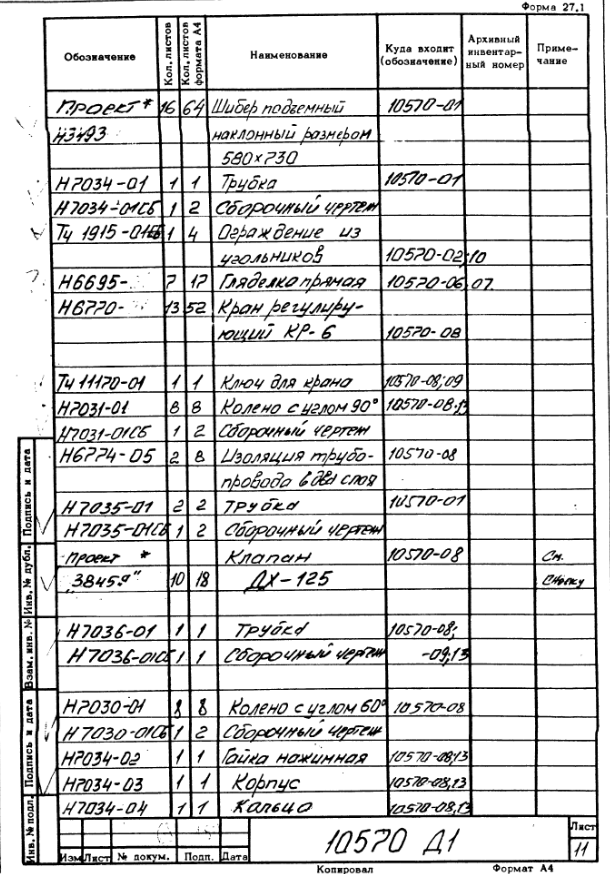 Форма 27.1
Обозначение Кол. листов Кол. листов формата А4 Наименование Куда входит (обозначение) Архивный инвентарный номер Примечание
Проект * 16 64 Шибер подъемный 10570-01
Н3493 наклонный размером
580×730
Н7034-01 1 1 Трубка 10570-01
Н7034-01СБ 1 2 Сборочный чертеж
Тч 1915-01СБ 1 4 Ограждение из
угольников 10570-02;10
Н6695- 7 17 Гляделка прямая 10570-06,07.
Н6770- 13 52 Кран регулиру-
ющий КР-6 10570-08
Тч 11170-01 1 1 Ключ для крана 10570-08;09
Н7031-01 8 8 Колено с углом 90° 10570-08;13
Н7031-01СБ 1 2 Сборочный чертеж
Н6774-05 2 8 Изоляция трубо- 10570-08
провода в два слоя
Н7035-01 2 2 Трубка 10570-01
Н7035-01СБ 1 2 Сборочный чертеж
Проект * Клапан 10570-08 См.
"38459" 10 18 ДХ-125 сноску
Н7036-01 1 1 Трубка 10570-08;
Н7036-01СБ 1 1 Сборочный чертеж -09;13
Н7030-01 8 8 Колено с углом 60° 10570-08
Н7030-01СБ 1 2 Сборочный чертеж
Н7034-02 1 1 Гайка нажимная 10570-08;13
Н7034-03 1 1 Корпус 10570-08,13
Н7034-04 1 1 Кольцо 10570-08,13
Инв. № подл. Подпись и дата Взам. инв. № Инв. № дубл. Подпись и дата
10570 Д1
Лист
11
Изм Лист № докум. Подп. Дата
Копировал Формат А4